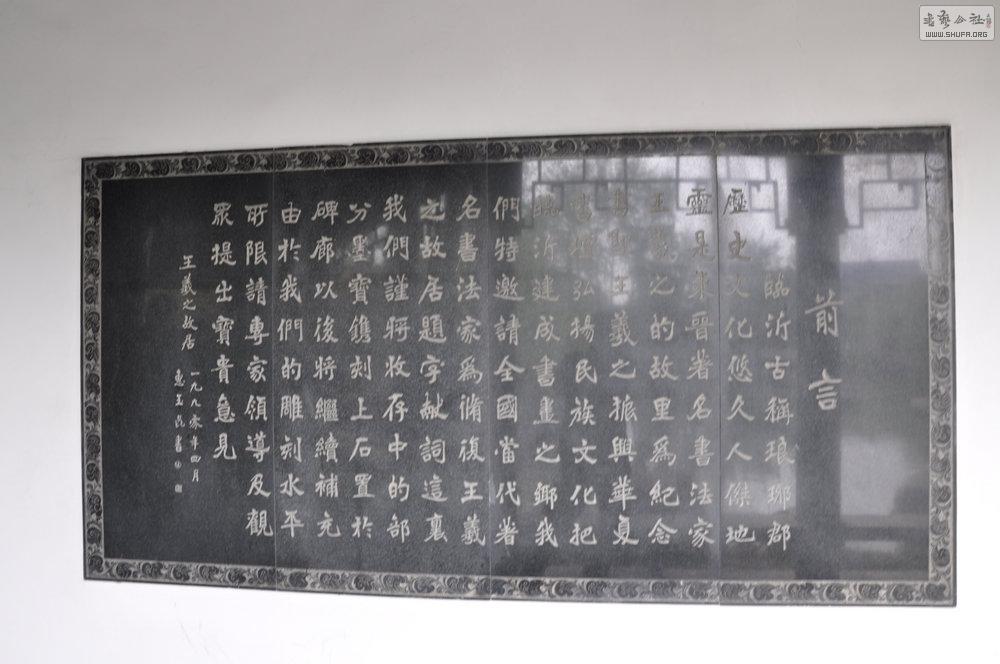 前言
臨沂古稱琅琊郡
歷史文化悠久人傑地
靈是東晉著名書法家
王羲之的故里爲紀念
書聖王羲之振興華夏
書壇弘揚民族文化把
臨沂建成書畫之鄉我
們特邀請全國當代著
名書法家爲脩復王羲
之故居題字献詞這裏
我們謹將收存中的部
分墨寶鐫刻上石置於
碑廊以後將繼續補充
由於我們的雕刻水平
所限請專家領導及觀
眾提出寶貴意見
王羲之故居 一九九零年四月
書
書艺公社
WWW.SHUFA.ORG